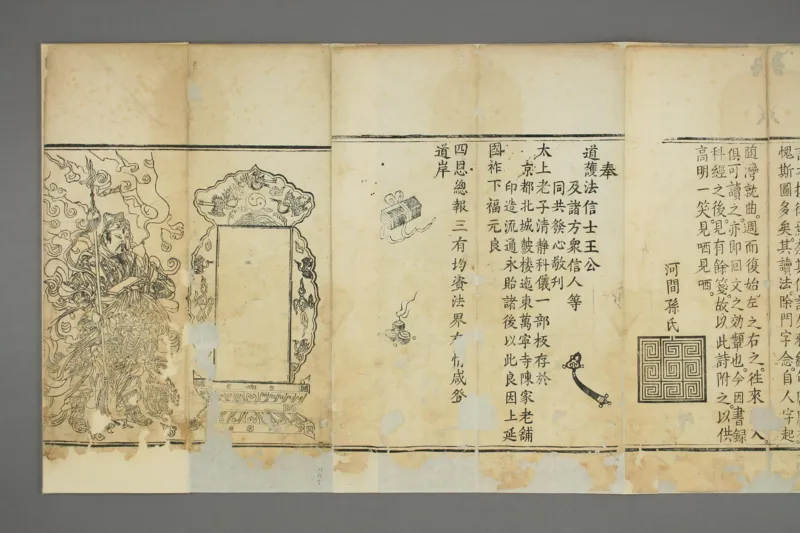 愧斯圖多矣。其讀法。除門字念。自人字起
隨灣就曲。週而復始。左之右之。往來入
俱可讀之。亦即回文之効顰也。今因書録
科經之後。見有餘箋。故以此詩附之以供
高明一笑見哂見哂。
河間孫氏
奉
道護法信士王公
及諸方衆信人等
同共發心敬刋
太上老子清静科儀一部板存於
京都北城皷楼迤東萬寧寺陳家老舖
印造流通永貽諸後以此良因上延
國祚下福元良
四恩總報三有均資法界有情咸登
道岸